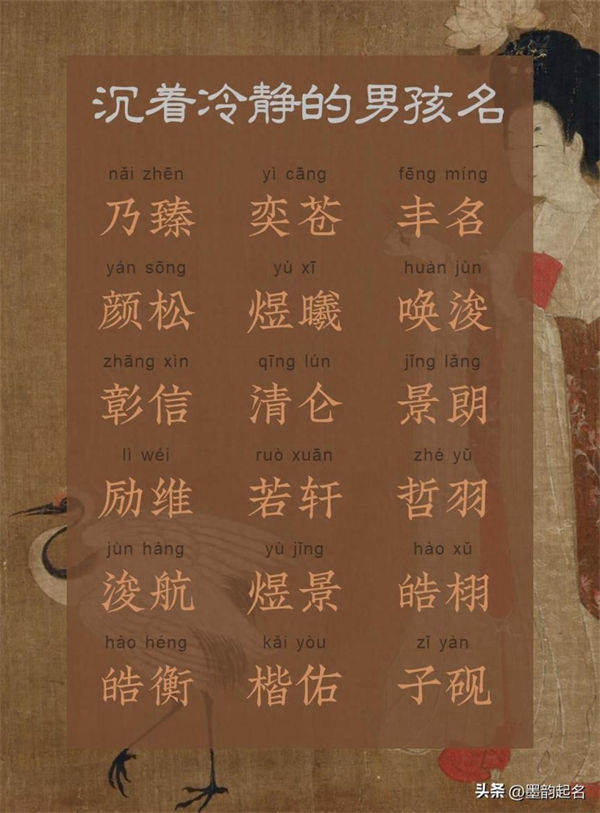 沉着冷静的男孩名
nǎi zhēn yì cāng fēng míng
乃臻 奕苍 丰名
yán sōng yù xī huàn jùn
颜松 煜曦 唤浚
zhāng xìn qīng lún jǐng lǎng
彰信 清仑 景朗
lì wéi ruò xuān zhé yǔ
励维 若轩 哲羽
jùn háng yù jǐng hào xǔ
浚航 煜景 皓栩
hào héng kǎi yòu zǐ yàn
皓衡 楷佑 子砚
头条 @墨韵起名